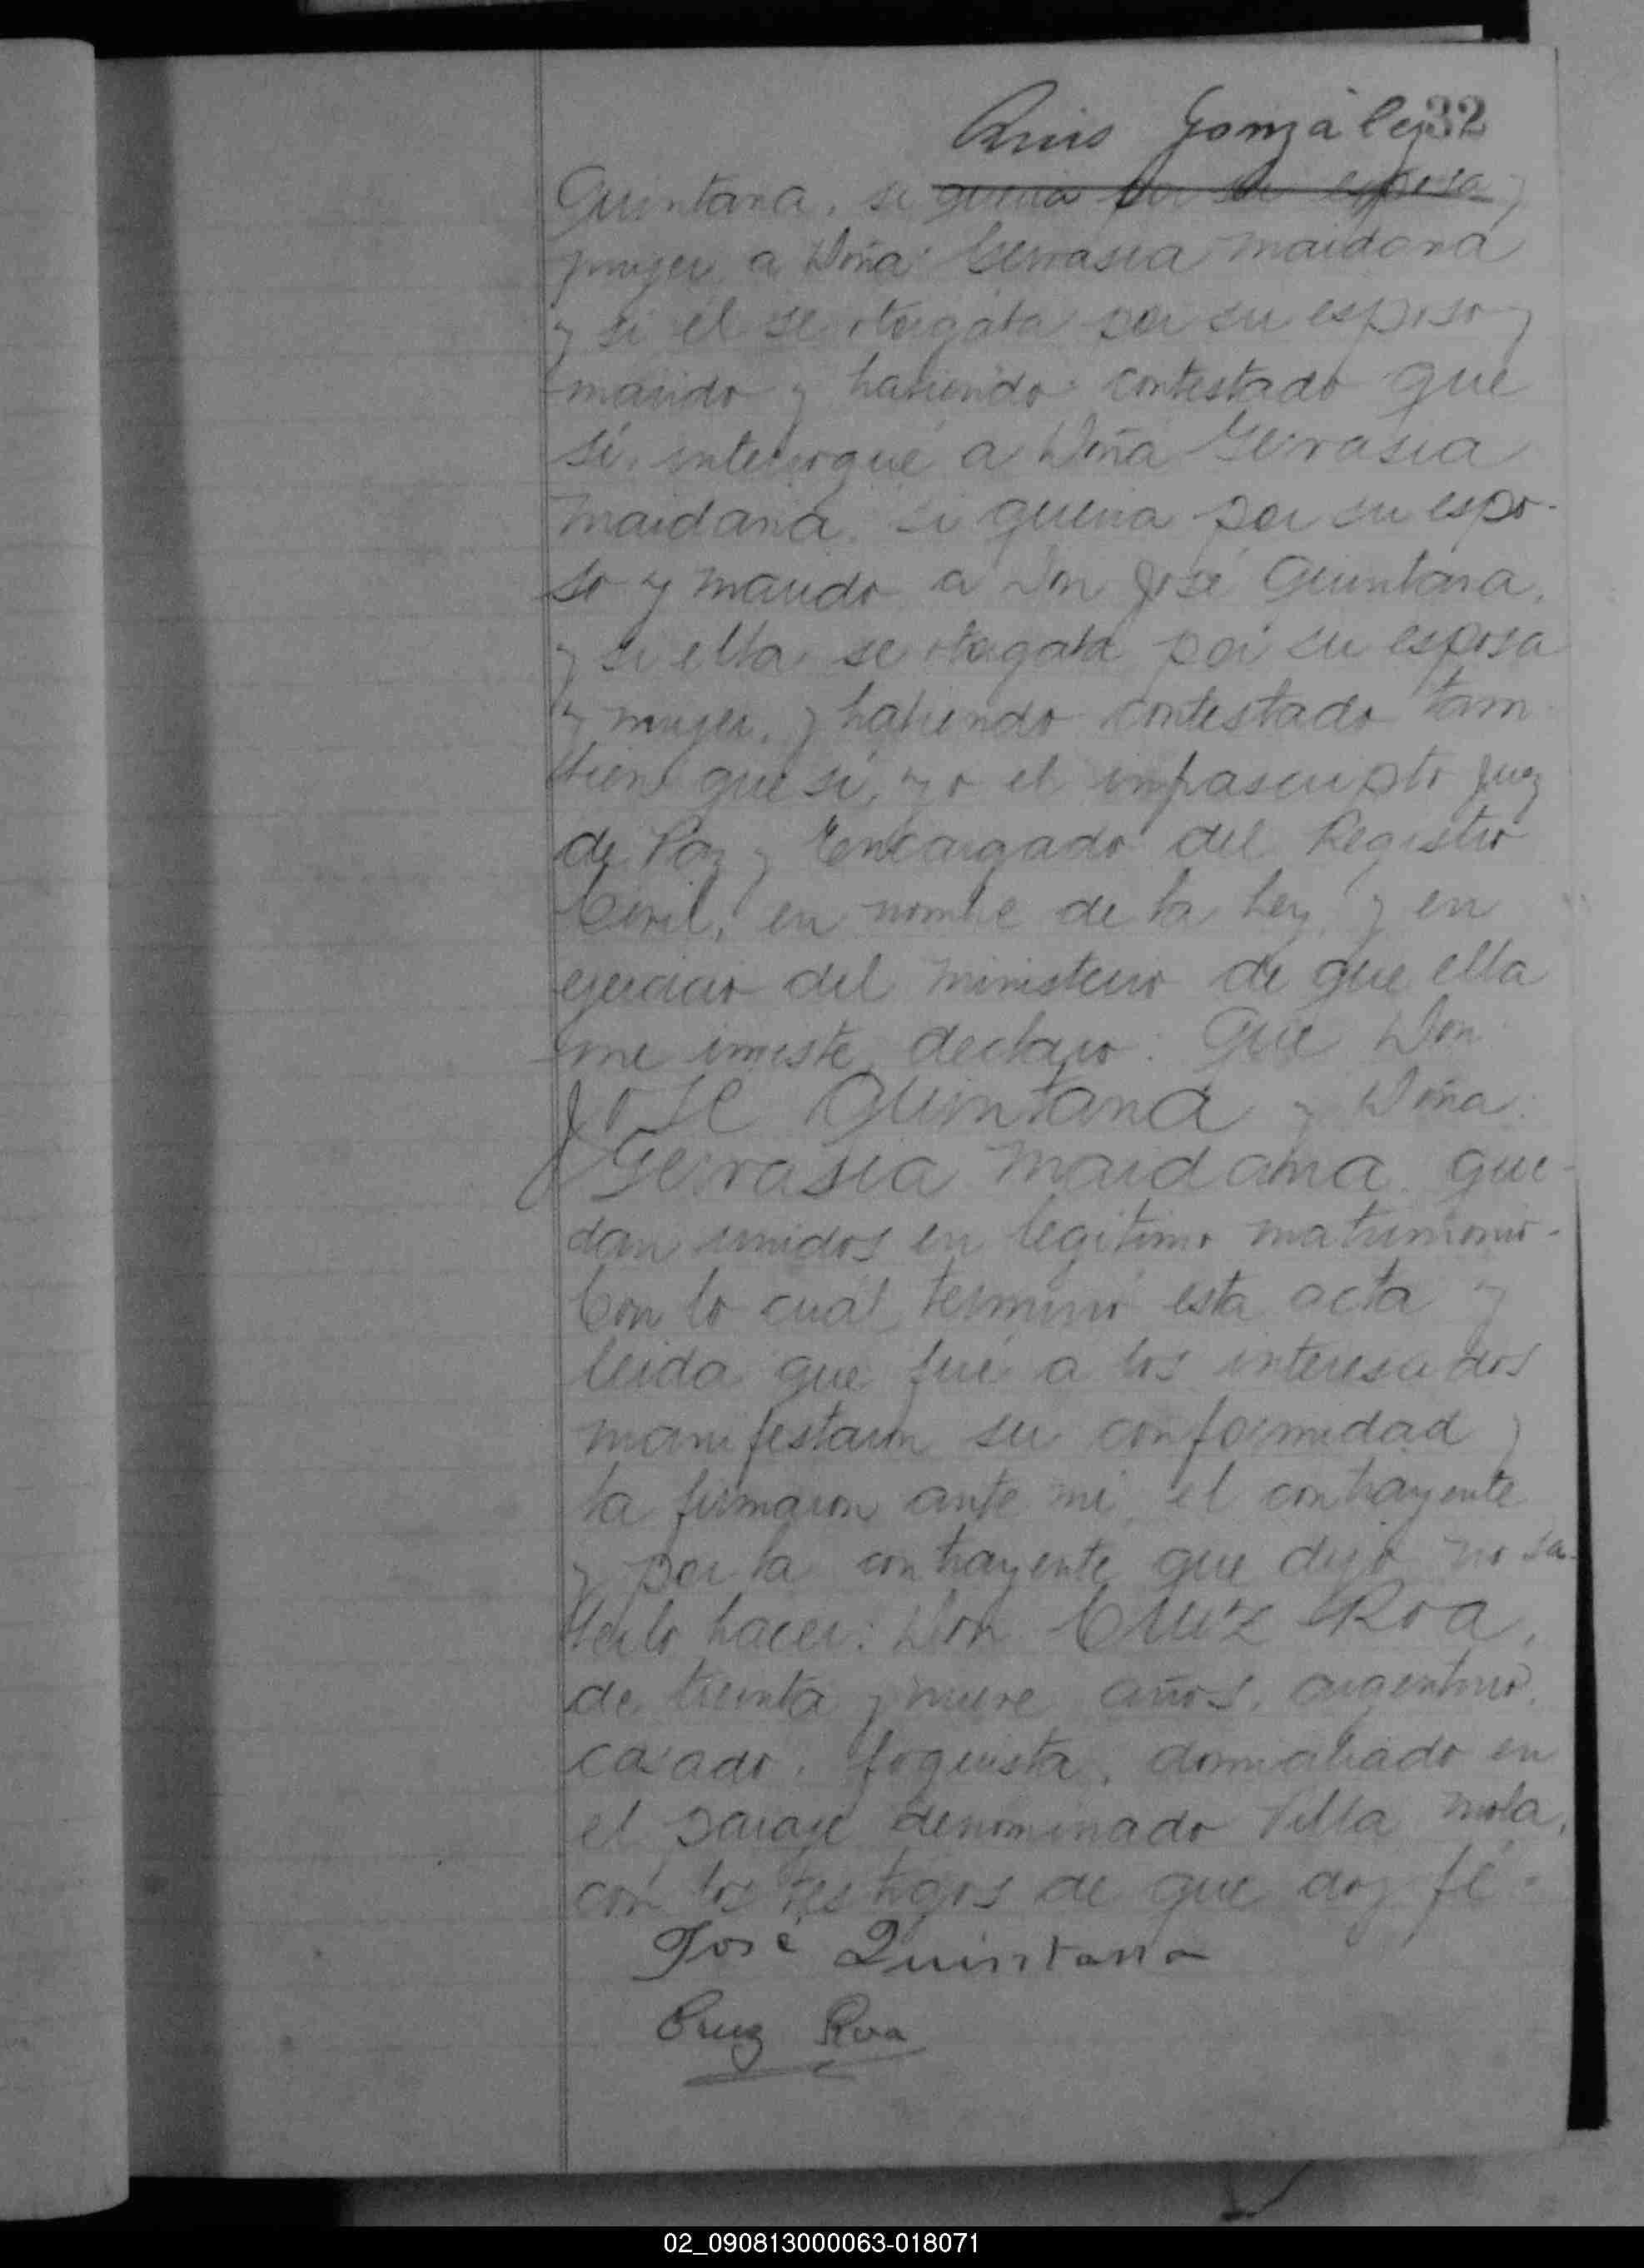 Luis González 32
Quintana, si queria por su esposa y
mujer a Doña Gervasia Maidana
y si él se otorgaba por su esposo y
marido y habiendo contestado que
sí, interrogué a Doña Gervasia
Maidana, si queria por su espo-
so y marido a Don José Quintana,
y si ella se otorgaba por su esposa
y mujer, y habiendo contestado tam
bien que sí, yo el infrascripto Juez
de Paz y Encargado del Registro
Civil, en nombre de la ley, y en
ejercicio del ministerio de que ella
me inviste, declaro: Que Don
José Quintana y Doña
Gervasia Maidana que-
dan unidos en legitimo matrimonio-
Con lo cuál terminó esta acta y
leida que fué a los interesados
manifestaron su conformidad y
la firmaron ante mi, el contrayente
y por la contrayente que dijo no sa-
berlo hacer: Don Cruz Roa,
de treinta y nueve años, argentino,
casado, foguista, domiciliado en
el paraje denominado Villa Mola,
con los testigos de que doy fé.
José Quintana
Cruz Roa
02_090813000063-018071